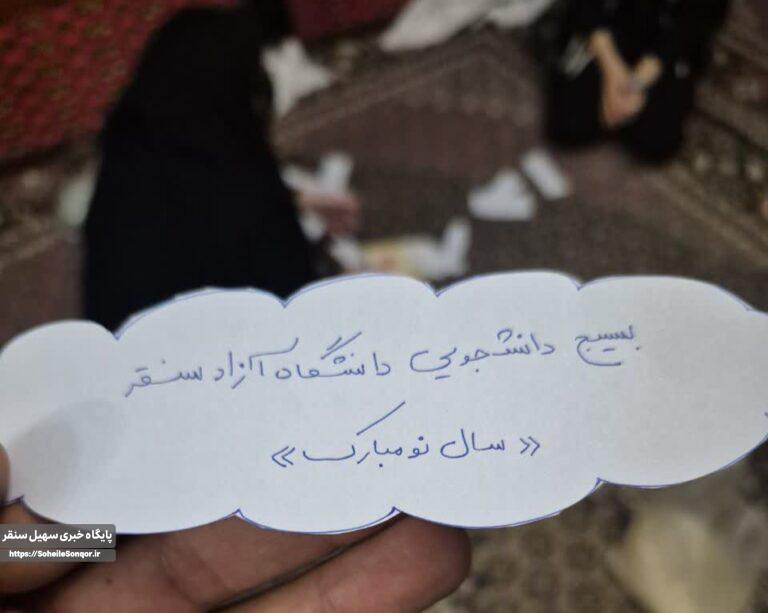 بسیج دانشجویی دانشگاه آزاد سنقر
« سال نو مبارک »
پایگاه خبری سهیل سنقر
https://SoheileSonqor.ir